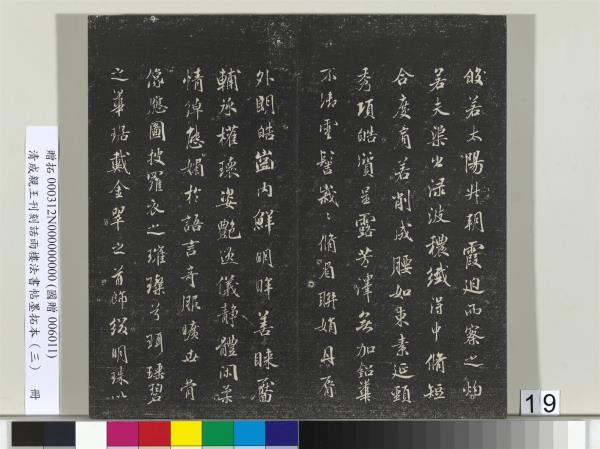 皎若太陽升朝霞迫而察之灼
若夫渠出渌波穠纖得中脩短
合度肩若削成腰如束素延頸
秀項皓質呈露芳澤無加鉛華
不御雲髻峩〻脩眉聯娟丹脣
外朗皓齒內鮮明眸善睞靨
輔承權瓌姿豔逸儀靜體閑柔
情綽態媚於語言奇服曠世骨
像應圖披羅衣之璀璨兮珥瑤碧
之華琚戴金翠之首飾綴明珠以
贈拓 000312N000000000 (國贈 006011)
清成親王刊刻話雨樓法書帖墨拓本（三） 冊
19